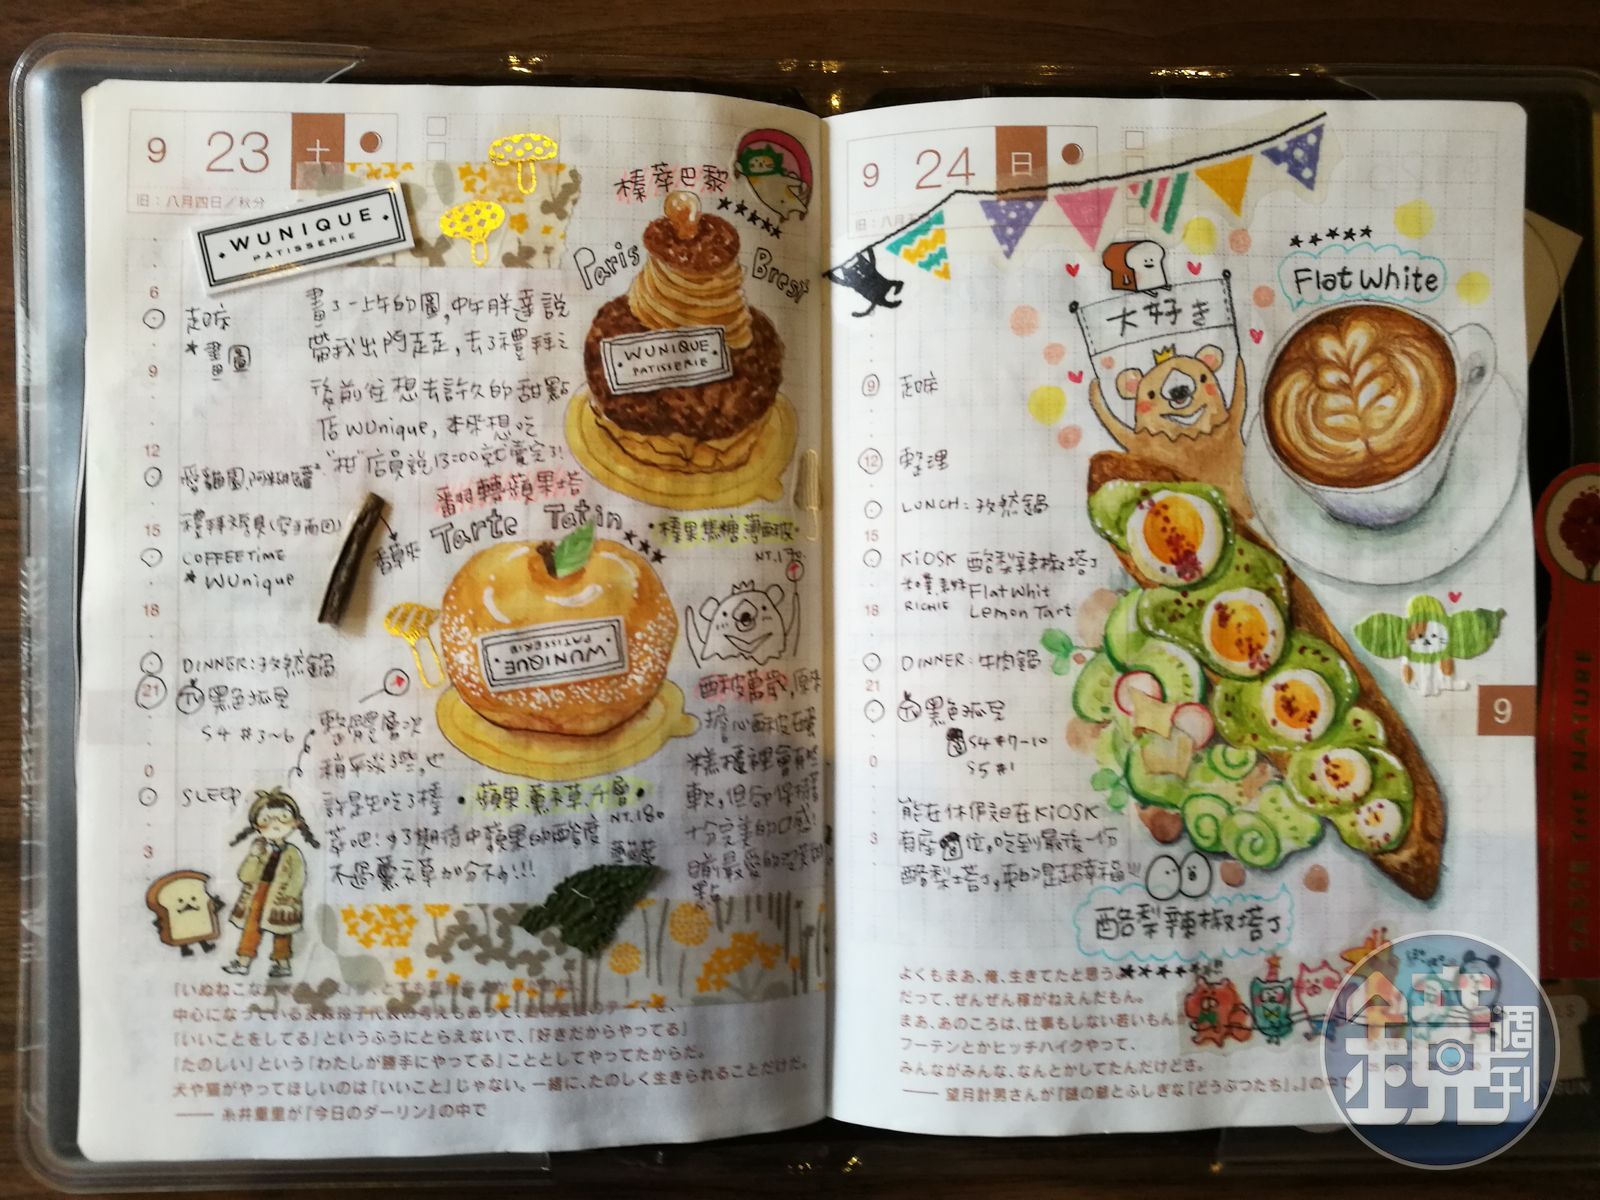 9 23 土
旧：八月四日／秋分
WUNIQUE
PATISSERIE
榛荽巴黎
★★★★★
Paris Brest
WUNIQUE
PATISSERIE
6
起床
★畫圖
9
12
15
禮拜
COFFEETIME
★WUnique
18
DINNER：孜然鍋
21
黑色孤星
S4 #3~6
0
SLEEP
3
畫了一上午的圖，中午胖達說
帶我出門走走，去了禮拜之
後前往想去許久的甜點
店WUnique，本來想吃
"柑"店員說13:00就賣完了！
番羽轉蘋果塔
Tarte Tatin
★★★★
香草莢
・榛果焦糖薄酥皮・
NT.170
WUNIQUE
PATISSERIE
整體層次
稍平淡了些，也
許是先吃了榛
荽吧！少了期待中蘋果的酸度
不過薰衣草加分不少!!!
・蘋果、薰衣草、千層・
NT.180
酥皮萬歲，原來
擔心酥皮在蛋
糕櫃裡會有些
軟，但卻保持著
十分完美的口感！
中心になっている
「いいことをしてる」というふうにとらえないで、「好きだからやってる」
「たのしい」という「わたしが勝手にやってる」こととしてやってたからだ。
犬や猫がやってほしいのは「いいこと」じゃない。一緒に、たのしく生きられることだけだ。
—— 糸井重里が『今日のダーリン』の中で
9 24 日
旧：八月
大好き
★★★★★
Flat White
9
起床
12
整理
LUNCH：孜然鍋
15
KiOSK 酪梨辣椒塔丁
Flat Whit
RICHIE Lemon Tart
18
DINNER：牛肉鍋
21
黑色孤星
S4 #7-10
S5 #1
0
3
能在休假日在KiOSK
有座位，吃到最後一份
酪梨塔丁，真的是超幸福!!!
酪梨辣椒塔丁
★★★★★
9
よくもまあ、俺、生きてたと思うよ
だって、ぜんぜん稼がねえんだもん。
まあ、あのころは、仕事もしない若いもんが
フーテンとかヒッチハイクやって、
みんながみんな、なんとかしてたんだけどさ。
—— 望月計男さんが『謎の爺とふしぎな「どうぶつたち」。』の中で
TASTE THE NATURE
鏡週刊